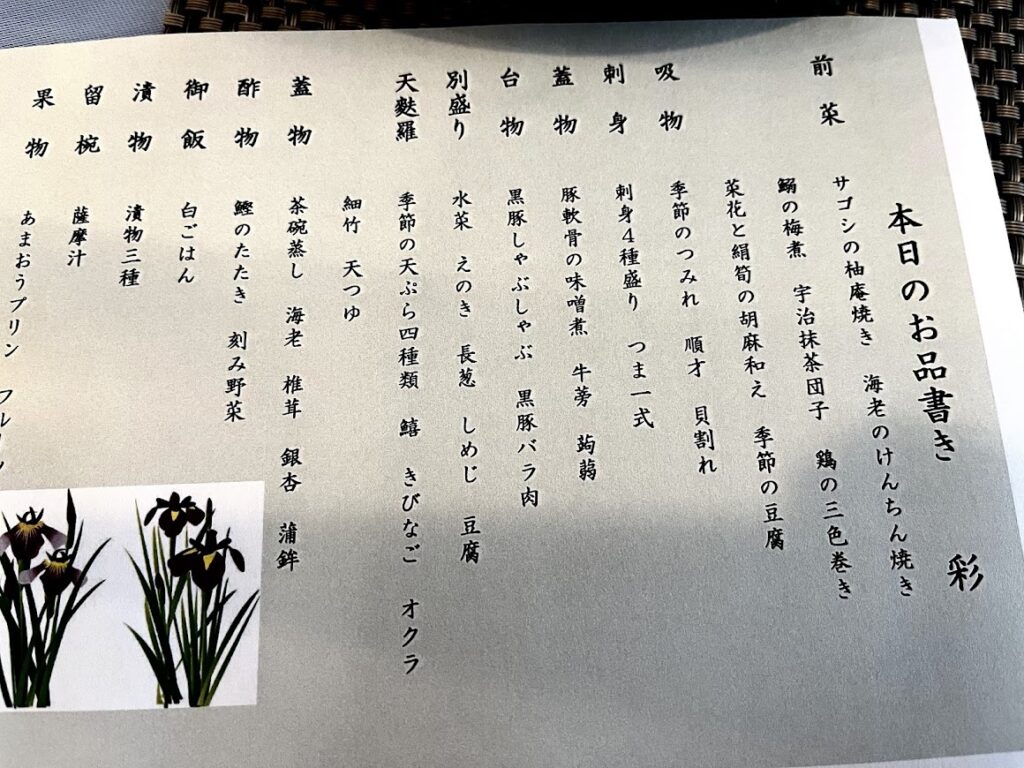 本日のお品書き 彩
前菜
サゴシの柚庵焼き 海老のけんちん焼き
鰯の梅煮 宇治抹茶団子 鶏の三色巻き
菜花と絹筍の胡麻和え 季節の豆腐
吸物 季節のつみれ 順才 貝割れ
刺身 刺身4種盛り つま一式
蓋物 豚軟骨の味噌煮 牛蒡 蒟蒻
台物 黒豚しゃぶしゃぶ 黒豚バラ肉
別盛り 水菜 えのき 長葱 しめじ 豆腐
天麩羅 季節の天ぷら四種類 鱚 きびなご オクラ
細竹 天つゆ
蓋物 茶碗蒸し 海老 椎茸 銀杏 蒲鉾
酢物 鰹のたたき 刻み野菜
御飯 白ごはん
漬物 漬物三種
留椀 薩摩汁
果物 あまおうプリン